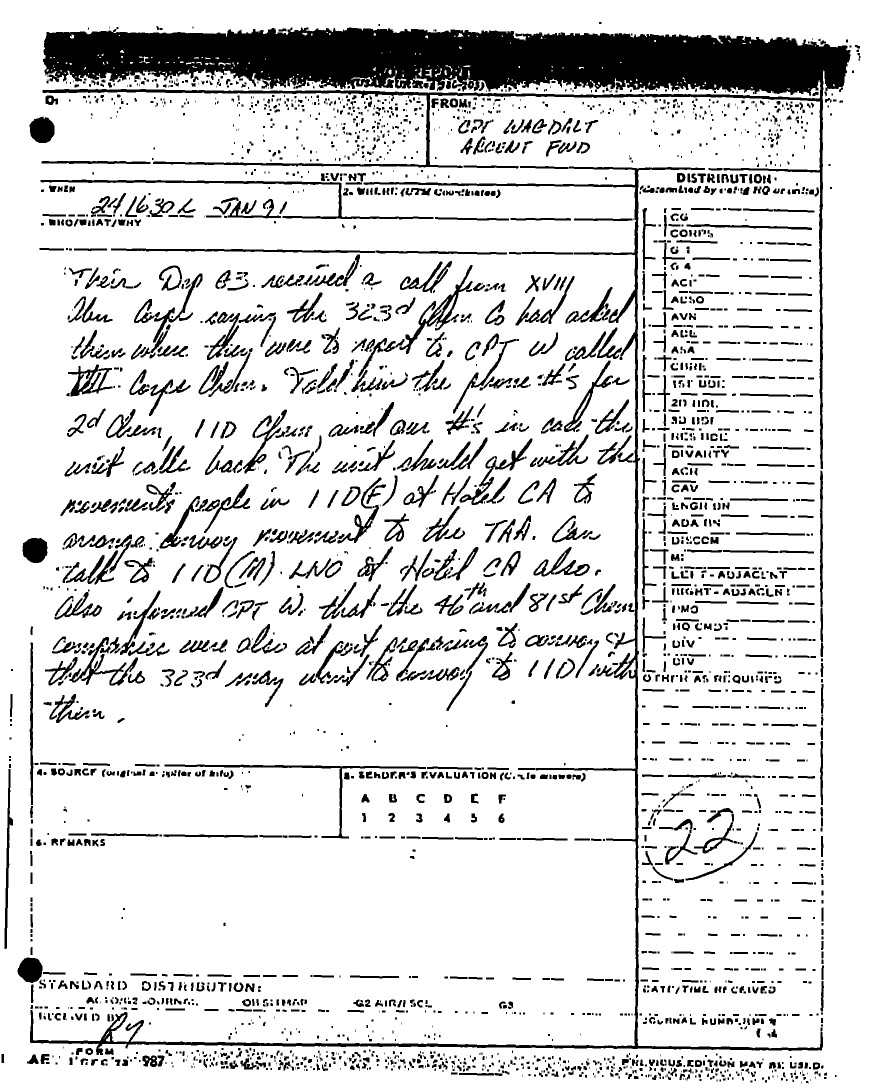 REPORT
FROM:
CPT WAGDALT
ARCENT FWD
EVENT
WHEN
241630L JAN 91
2. WHERE (UTM Coordinates)
WHO/WHAT/WHY
DISTRIBUTION
(determined by using HQ or units)
CG
CORPS
G 1
G 4
AVN
ASA
CBRE
1ST BDE
2D BDE
3D BDE
RES BDE
DIVARTY
CAV
ENGR BN
ADA BN
DISCOM
MI
LEFT - ADJACENT
RIGHT - ADJACENT
PMO
HQ CMDT
DIV
DIV
OTHER AS REQUIRED
Their Dep G3 received a call from XVIII
Abn Corps saying the 323d Chem Co had asked
them where they were to report to. CPT W called
VII Corps Chem. Told him the phone #'s for
2d Chem, 1ID Chem, and our #'s in case the
unit calls back. The unit should get with the
movements people in 1ID(F) at Hotel CA to
arrange convoy movement to the TAA. Can
talk to 1ID(M) LNO at Hotel CA also.
Also informed CPT W. that the 46th and 81st Chem
companies were also at port preparing to convoy &
that the 323d may want to convoy to 1ID with
them.
4. SOURCE (original supplier of info)
5. SENDER'S EVALUATION (Circle answers)
A B C D E F
1 2 3 4 5 6
22
6. REMARKS
STANDARD DISTRIBUTION:
G3
DATE/TIME RECEIVED
RECEIVED BY
JOURNAL NUMBER
FORM
987
PREVIOUS EDITION MAY BE USED.